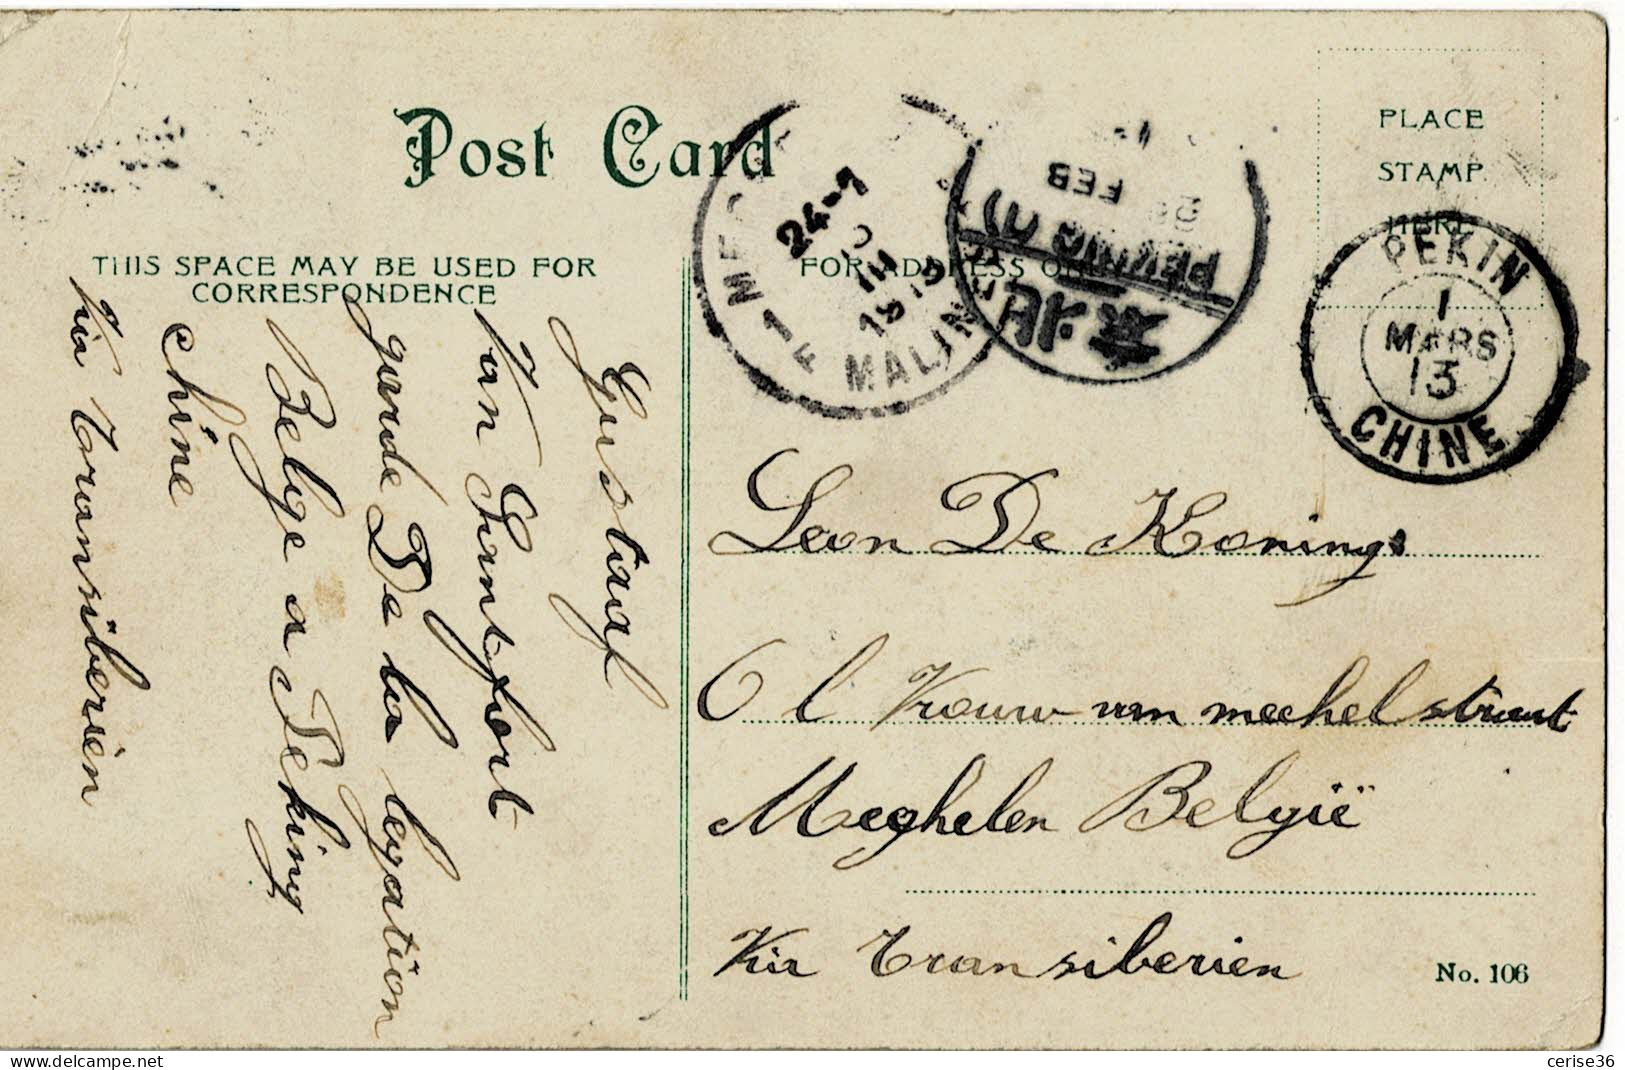 Post Card
THIS SPACE MAY BE USED FOR
CORRESPONDENCE
FOR ADDRESS ONLY
PLACE
STAMP
HERE
24-7
1913
MALINES
FEB
PEKING
北京
PEKIN
1
MARS
13
CHINE
Gustaaf
Van Santfort
garde De la legation
Belge a Peking
chine
Via transiberien
Leon De Konings
O l Vrouw van mechelstraat
Meghelen België
Via transiberien
No. 106
cerise36
Click to view full size